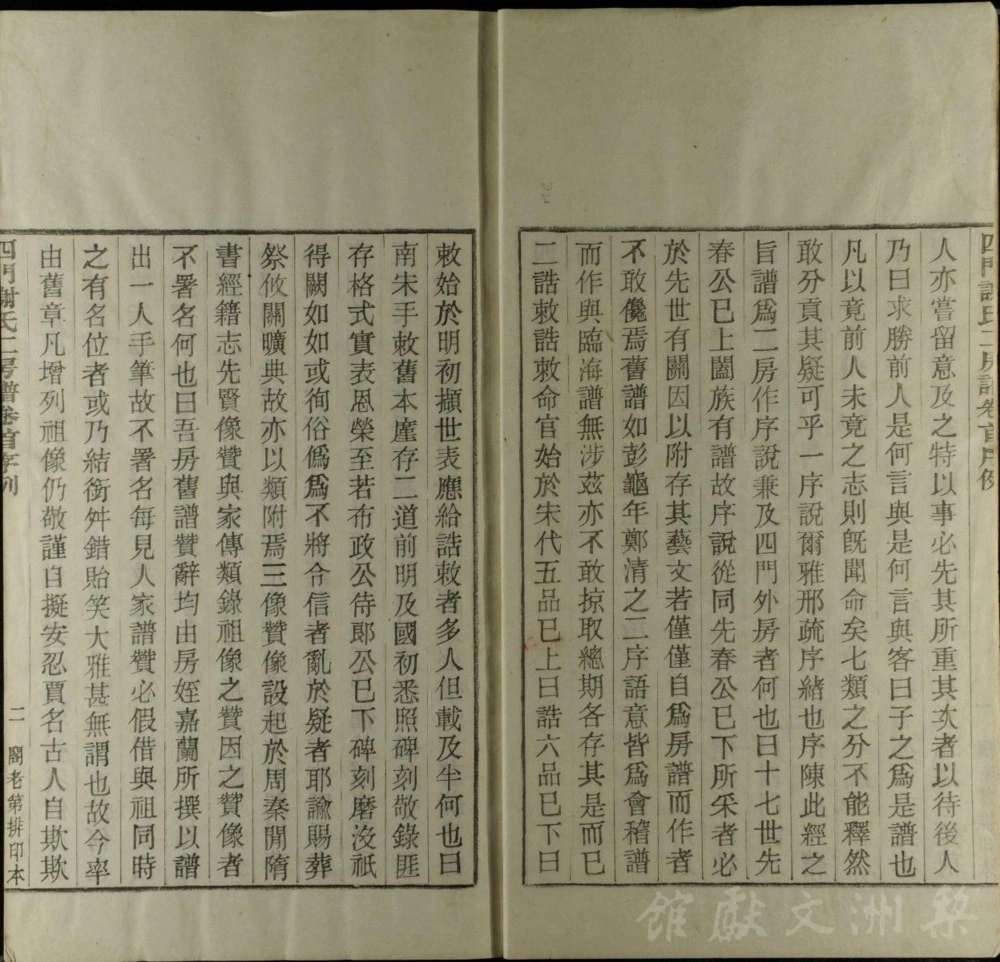 四門謝氏二房譜卷首序例
人亦嘗留意及之特以事必先其所重其次者以待後人
乃曰求勝前人是何言與是何言與客曰子之爲是譜也
凡以竟前人未竟之志則旣聞命矣七類之分不能釋然
敢分貢其疑可乎一序說爾雅邢疏序緒也序陳此經之
旨譜爲二房作序說兼及四門外房者何也曰十七世先
春公已上闔族有譜故序說從同先春公已下所采者必
於先世有關因以附存其藝文若僅僅自爲房譜而作者
不敢儳焉舊譜如彭龜年鄭清之二序語意皆爲會稽譜
而作與臨海譜無涉茲亦不敢掠取總期各存其是而已
二誥敕誥敕命官始於宋代五品已上曰誥六品已下曰
敕始於明初擷世表應給誥敕者多人但載及半何也曰
南宋手敕舊本廑存二道前明及國初悉照碑刻敬錄匪
存格式實表恩榮至若布政公侍郞公已下碑刻磨沒祇
得闕如如或徇俗僞爲不將令信者亂於疑者耶諭賜葬
祭攸關曠典故亦以類附焉三像贊像設起於周秦閒隋
書經籍志先賢像贊與家傳類錄祖像之贊因之贊像者
不署名何也曰吾房舊譜贊辭均由房姪嘉蘭所撰以譜
出一人手筆故不署名每見人家譜贊必假借與祖同時
之有名位者或乃結銜舛錯貽笑大雅甚無謂也故今率
由舊章凡增列祖像仍敬謹自擬安忍賈名古人自欺欺
四門謝氏二房譜卷首序例
二
閣老第排印本
梨洲文獻館